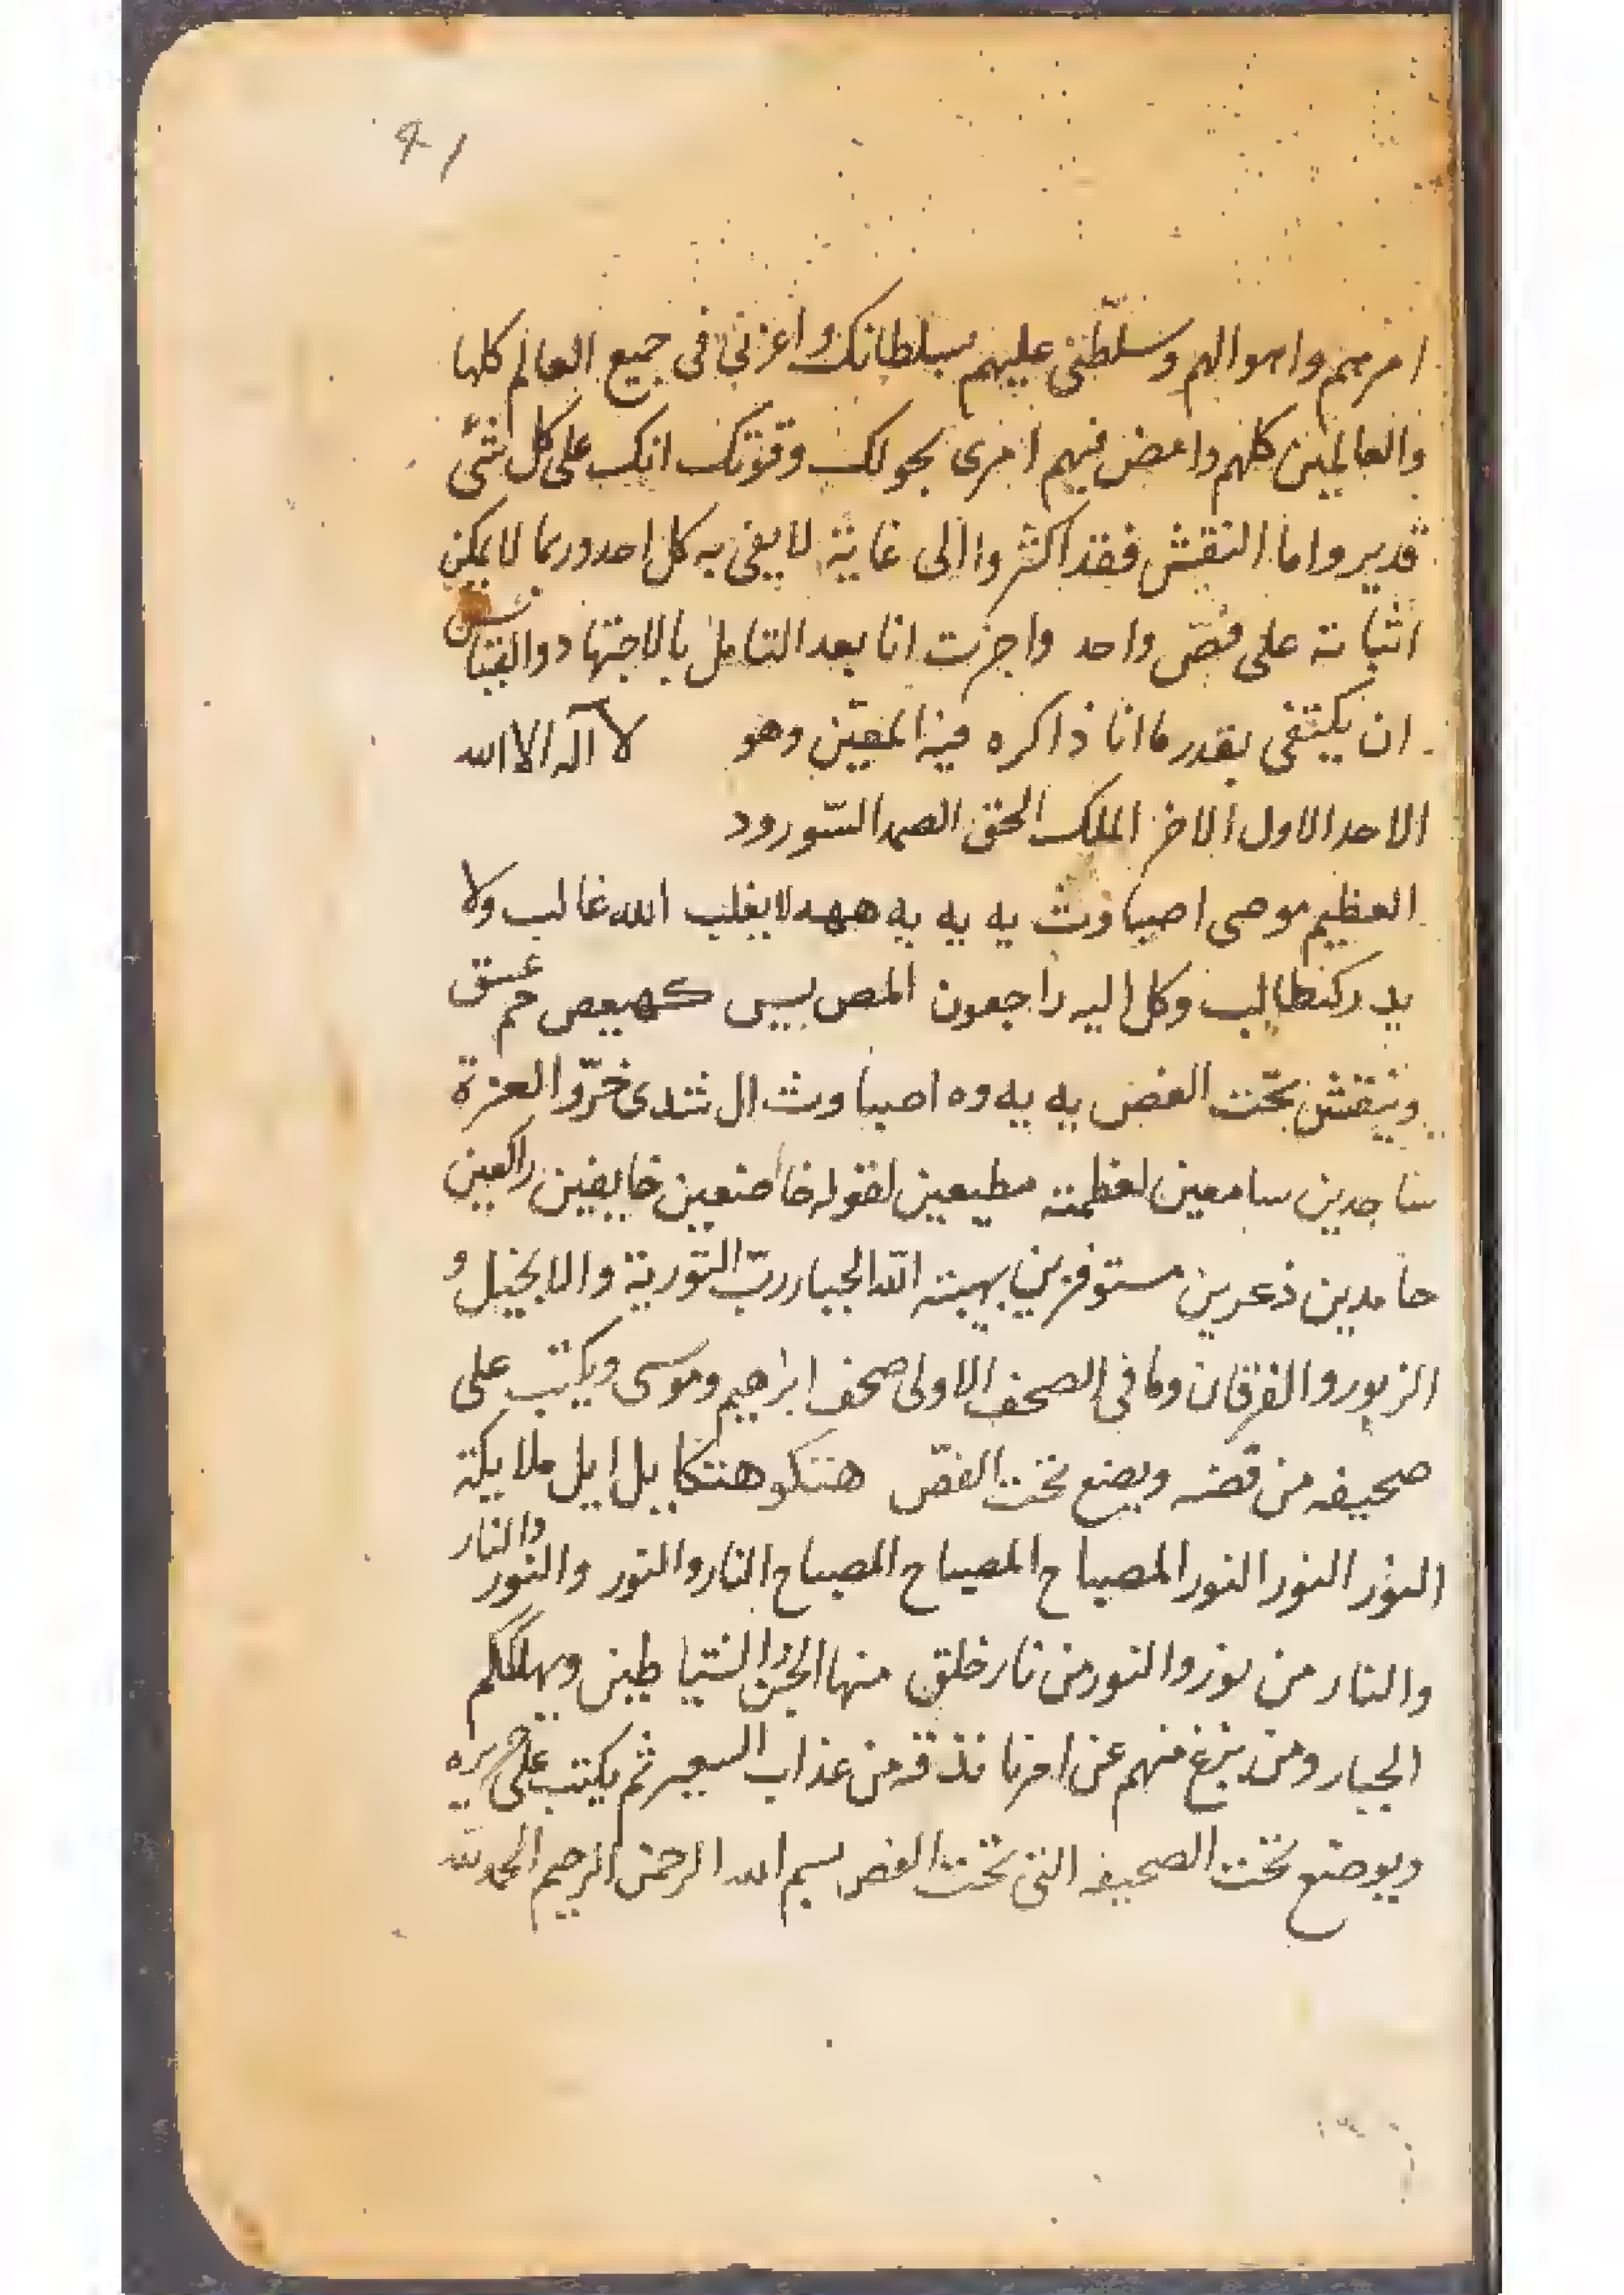 41
امرهم واموالهم وسلطنى عليهم بسلطانك واعزنى فى جميع العالم كلها
والعالمين كلهم وامض فيهم امرى بحولك وقوتك انك على كل شى
قدير واما النقش فقد اكثروا الى غاية لا يفى به كل احد وربما لا يمكن
اثباته على فصّ واحد واجزت انا بعد التامل بالاجتهاد والقياس
ان يكتفى بقدر ما انا ذاكره فيه المعيّن وهو لا آله الا الله
الاحد الاول الاخر الملك الحق الصمد
العظيم موصى اصباوث يه يه يه ههه لا يغلب الله غالب ولا
يدركه طالب وكل اليه راجعون المص يس كهيعص حم عسق
وينقش تحت الفص يه يه وه اصباوث ال شدى خرّوا لعزة
ساجدين سامعين لعظمته مطيعين لقوله خاضعين خايفين راكعين
حامدين ذعرين مستوفزين بهيبة الله الجبار ربّ التورية والانجيل و
الزبور والفرقان وما فى الصحف الاولى صحف ابرهيم وموسى ويكتب على
صحيفه من فضه ويضع تحت الفصّ هتكو هتكاييل ايل ملايكة
النور النور النور المصباح المصباح المصباح النار والنور والنور والنار
والنار من نور والنور من نار خلق منها الجن والشياطين ويهلككم
الجبار ومن يزغ منهم عن امرنا نذقه من عذاب السعير ثم يكتب على حريره
ويوضع تحت الصحيفه التى تحت الفص بسم الله الرحمن الرحيم الحمد لله